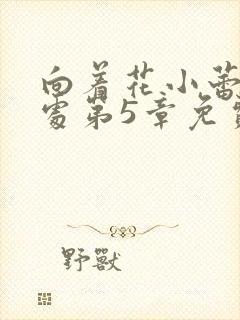 向着花小蕾
处第5章免
野獸